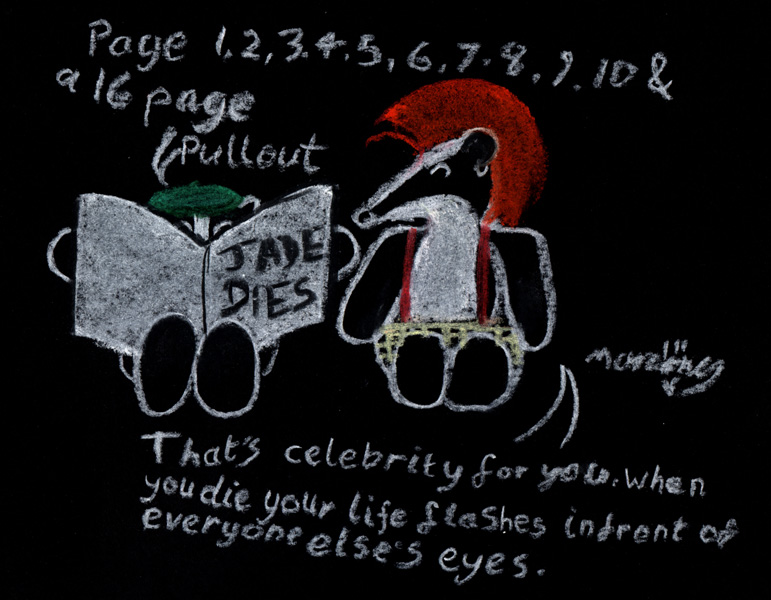 Page 1,2,3.4.5,6,7.8,9.10 &
a 16 page
Pullout
JADE
DIES
That's celebrity for you. when
you die your life flashes infront of
everyone else's eyes.